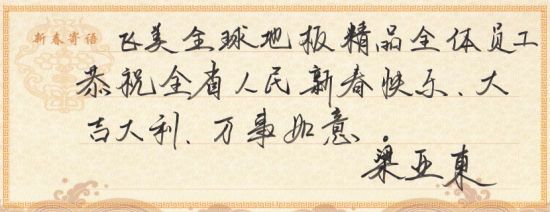 新春寄语
飞美全球地板精品全体员工
恭祝全省人民新春快乐、大
吉大利、万事如意。
梁亚東